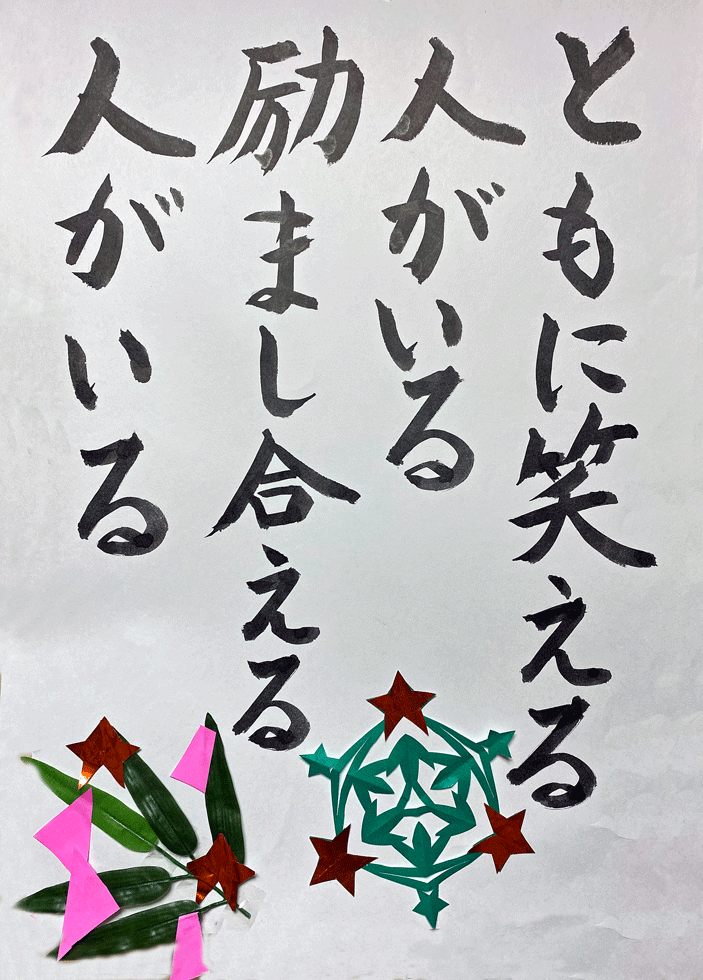 ともに笑える
人がいる
励まし合える
人がいる